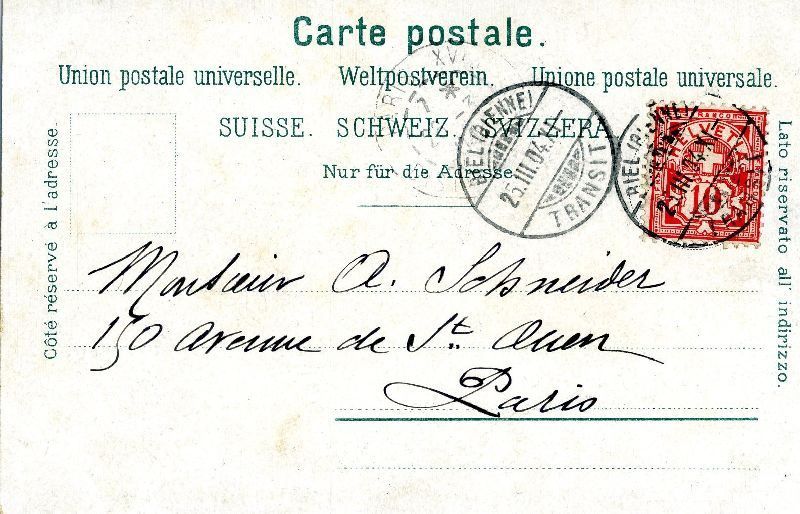 Carte postale.
Union postale universelle. Weltpostverein. Unione postale universale.
SUISSE. SCHWEIZ. SVIZZERA
Nur für die Adresse.
Côté réservé à l'adresse.
Lato riservato all' indirizzo.
BIEL (BIENNE)
25.III.04.
TRANSIT
BIEL (BIENNE)
HELVETIA
10
Monsieur A. Schneider
150 Avenue de St. Ouen
Paris